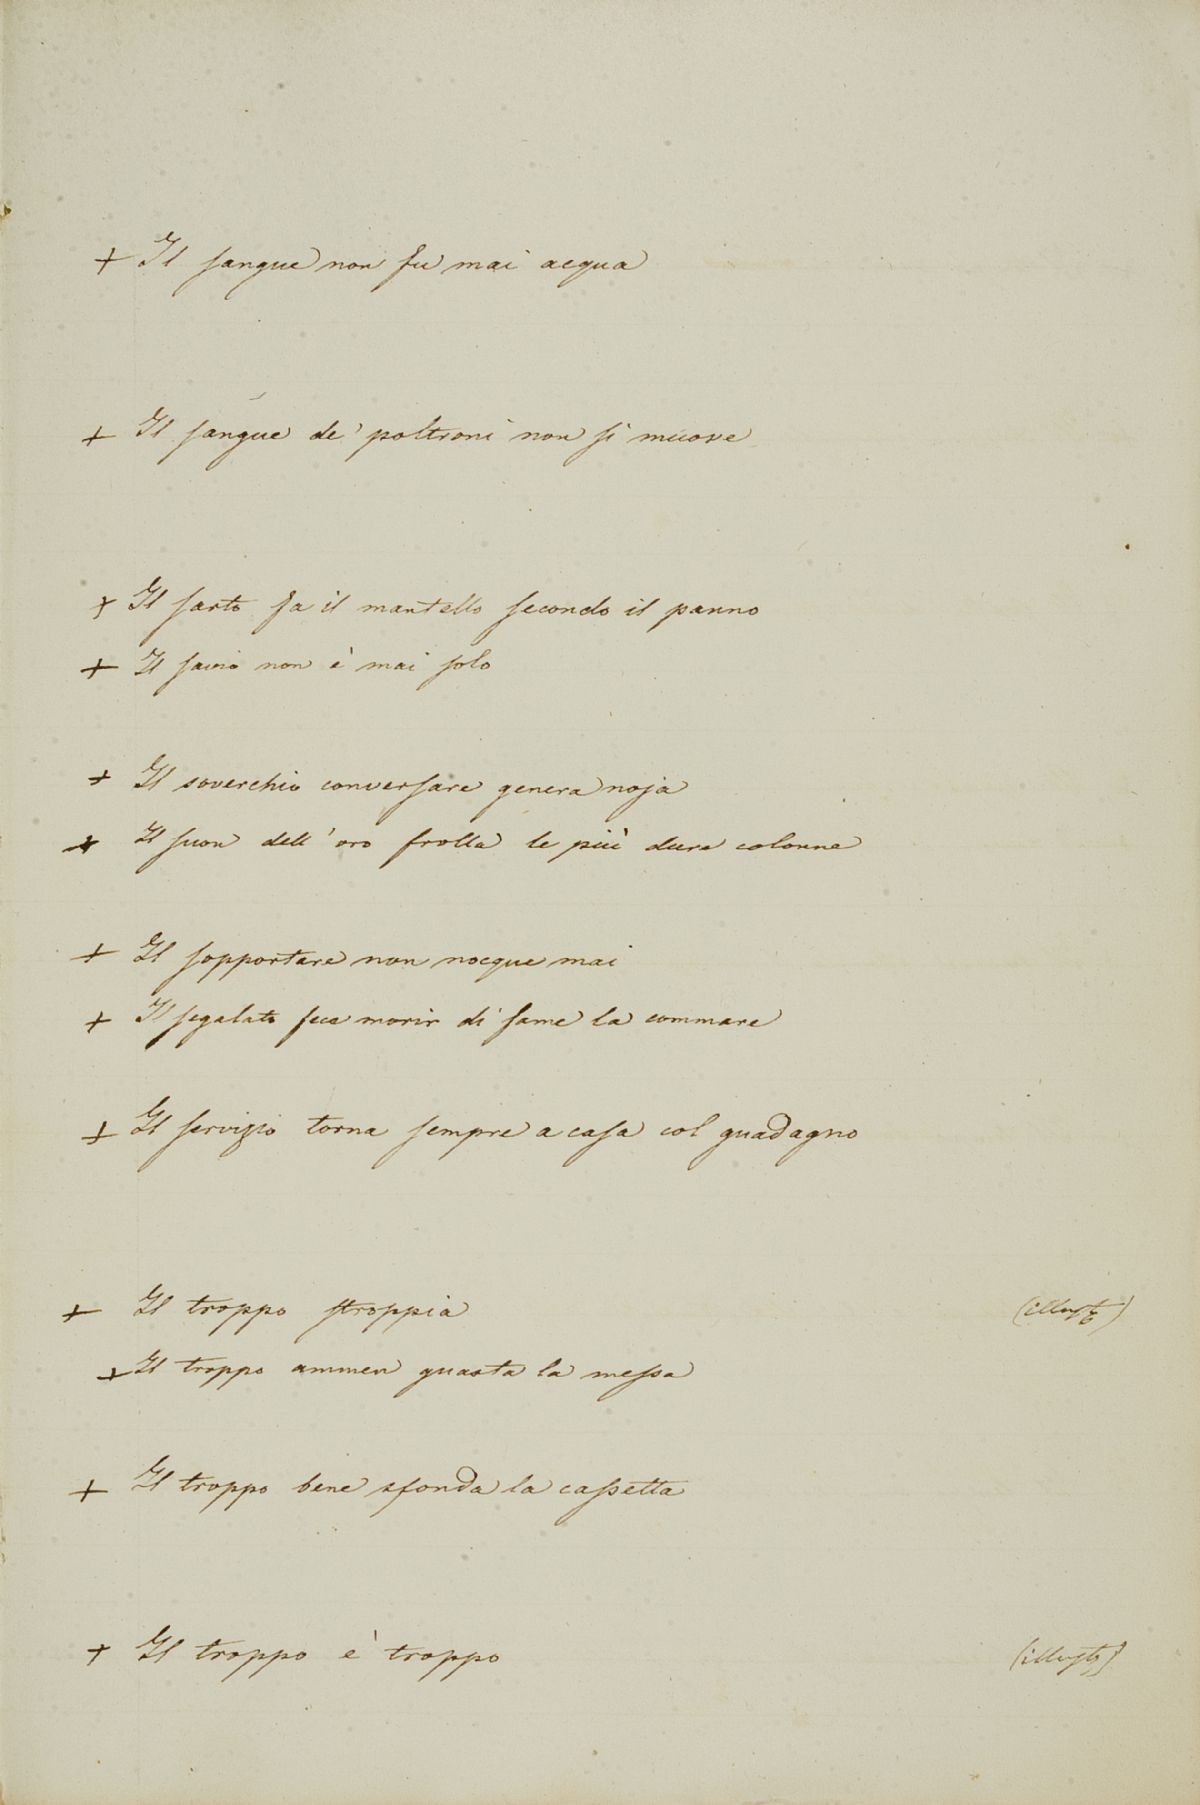 + Il sangue non fu mai acqua
+ Il sangue de' poltroni non si muove
+ Il sarto fa il mantello secondo il panno
+ Il savio non è mai solo
+ Il soverchio conversare genera noja
+ Il suon dell'oro frolla le più dure colonne
+ Il sopportare non nocque mai
+ Il segalato fece morir di fame la commare
+ Il servizio torna sempre a casa col guadagno
+ Il troppo stroppia
+ Il troppo ammen guasta la messa
+ Il troppo bene sfonda la cassetta
+ Il troppo è troppo